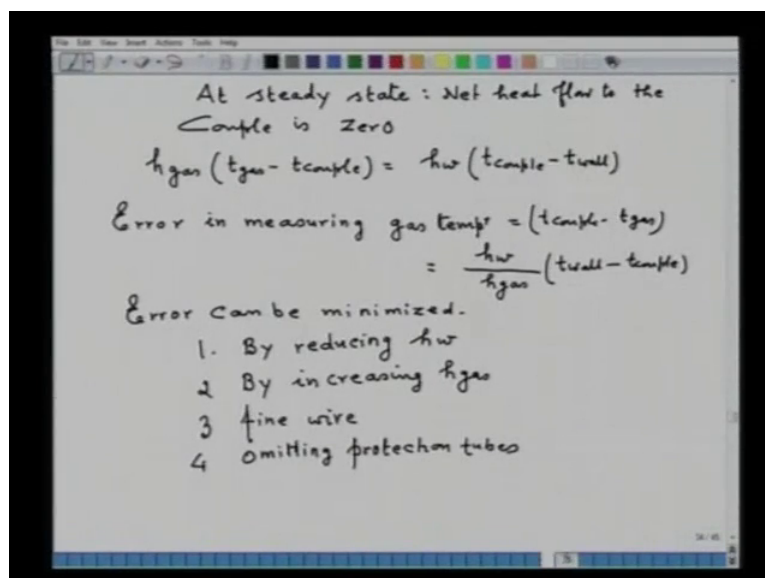 File Edit View Insert Actions Tools Help
At steady state : Net heat flow to the
Couple is zero
hgas (tgas - tcouple) = hw (tcouple - twall)
Error in measuring gas tempr = (tcouple - tgas)
= hw/hgas (twall - tcouple)
Error can be minimized.
1. By reducing hw
2 By increasing hgas
3 fine wire
4 omitting protection tubes